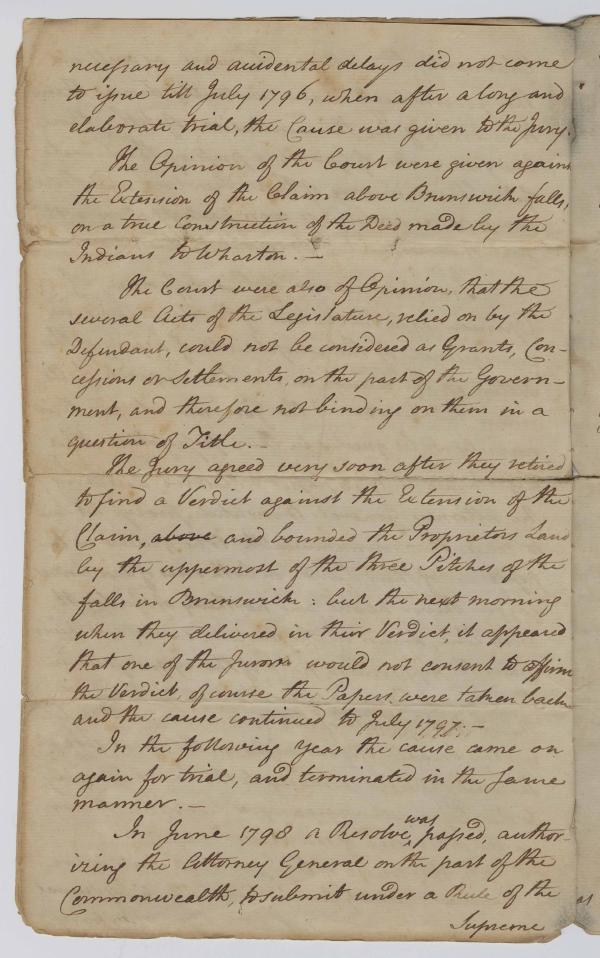 necessary and accidental delays did not come
to issue till July 1796, when after a long and
elaborate trial, the Cause was given to the Jury.
The Opinion of the Court were given against
the Extension of the Claim above Brunswick falls,
on a true Construction of the Deed made by the
Indians to Wharton. —
The Court were also of Opinion, that the
several Acts of the Legislature, relied on by the
Defendant, could not be considered as Grants, Con-
cessions or Settlements, on the part of the Govern-
ment, and therefore not binding on them in a
question of Title. —
The Jury agreed very soon after they retired
to find a Verdict against the Extension of the
Claim, above and bounded the Proprietors Land
by the uppermost of the three Pitches of the
falls in Brunswick: but the next morning
when they delivered in their Verdict, it appeared
that one of the Jurors would not consent to affirm
the Verdict, of course the Papers were taken back
and the cause continued to July 1797. —
In the following year the cause came on
again for trial, and terminated in the same
manner. —
In June 1798 a Resolve was passed, author-
izing the Attorney General on the part of the
Commonwealth, to submit under a Rule of the
Supreme